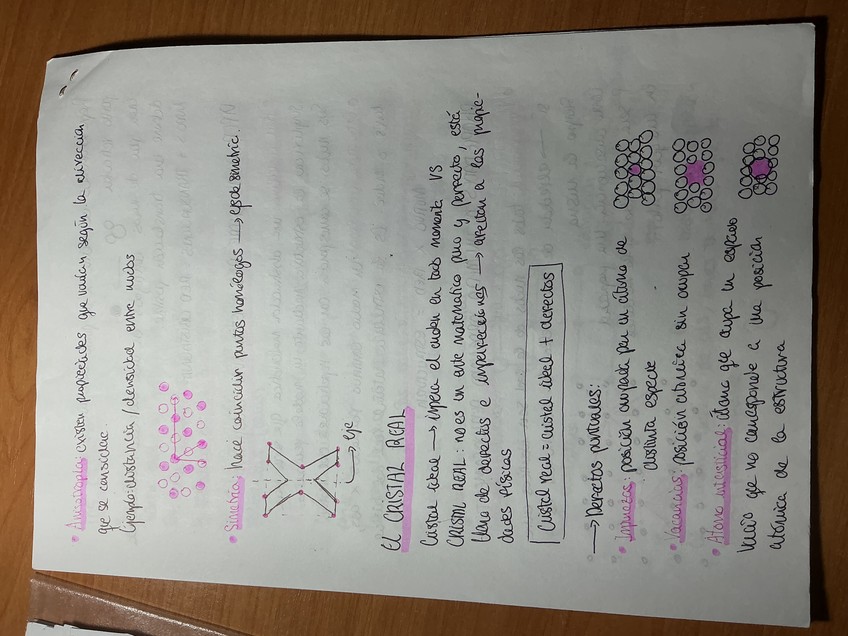 • Anisotropía: existen propiedades que varían según la dirección
que se considere.
Ejemplo: distancia / densidad entre nudos
• Simetría: hace coincidir puntos homólogos → eje de simetría.
eje
EL CRISTAL REAL
Cristal ideal → impera el orden en todo momento VS
CRISTAL REAL: no es un ente matemático puro y perfecto, está
lleno de defectos e imperfecciones → afectan a las propie-
dades físicas
Cristal real = cristal ideal + defectos
→ Defectos puntuales:
• Impurezas: posición ocupada por un átomo de
distinta especie
• Vacancias: posición atómica sin ocupar
• Átomo intersticial: átomo que ocupa un espacio
vacío que no corresponde a una posición
atómica de la estructura